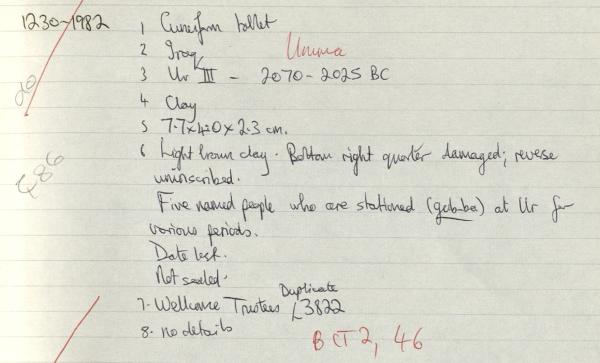 1230-1982
1 Cuneiform tablet
2 Iraq Umma
3 Ur III - 2070-2025 BC
4 Clay
5 7.7x4.0x2.3 cm.
6 Light brown clay. Bottom right quarter damaged; reverse
uninscribed.
Five named people who are stationed (gub-ba) at Ur for
various periods.
Date lost.
Not sealed.
Duplicate
7. Wellcome Trustees 3822
8. no details
BCT 2, 46